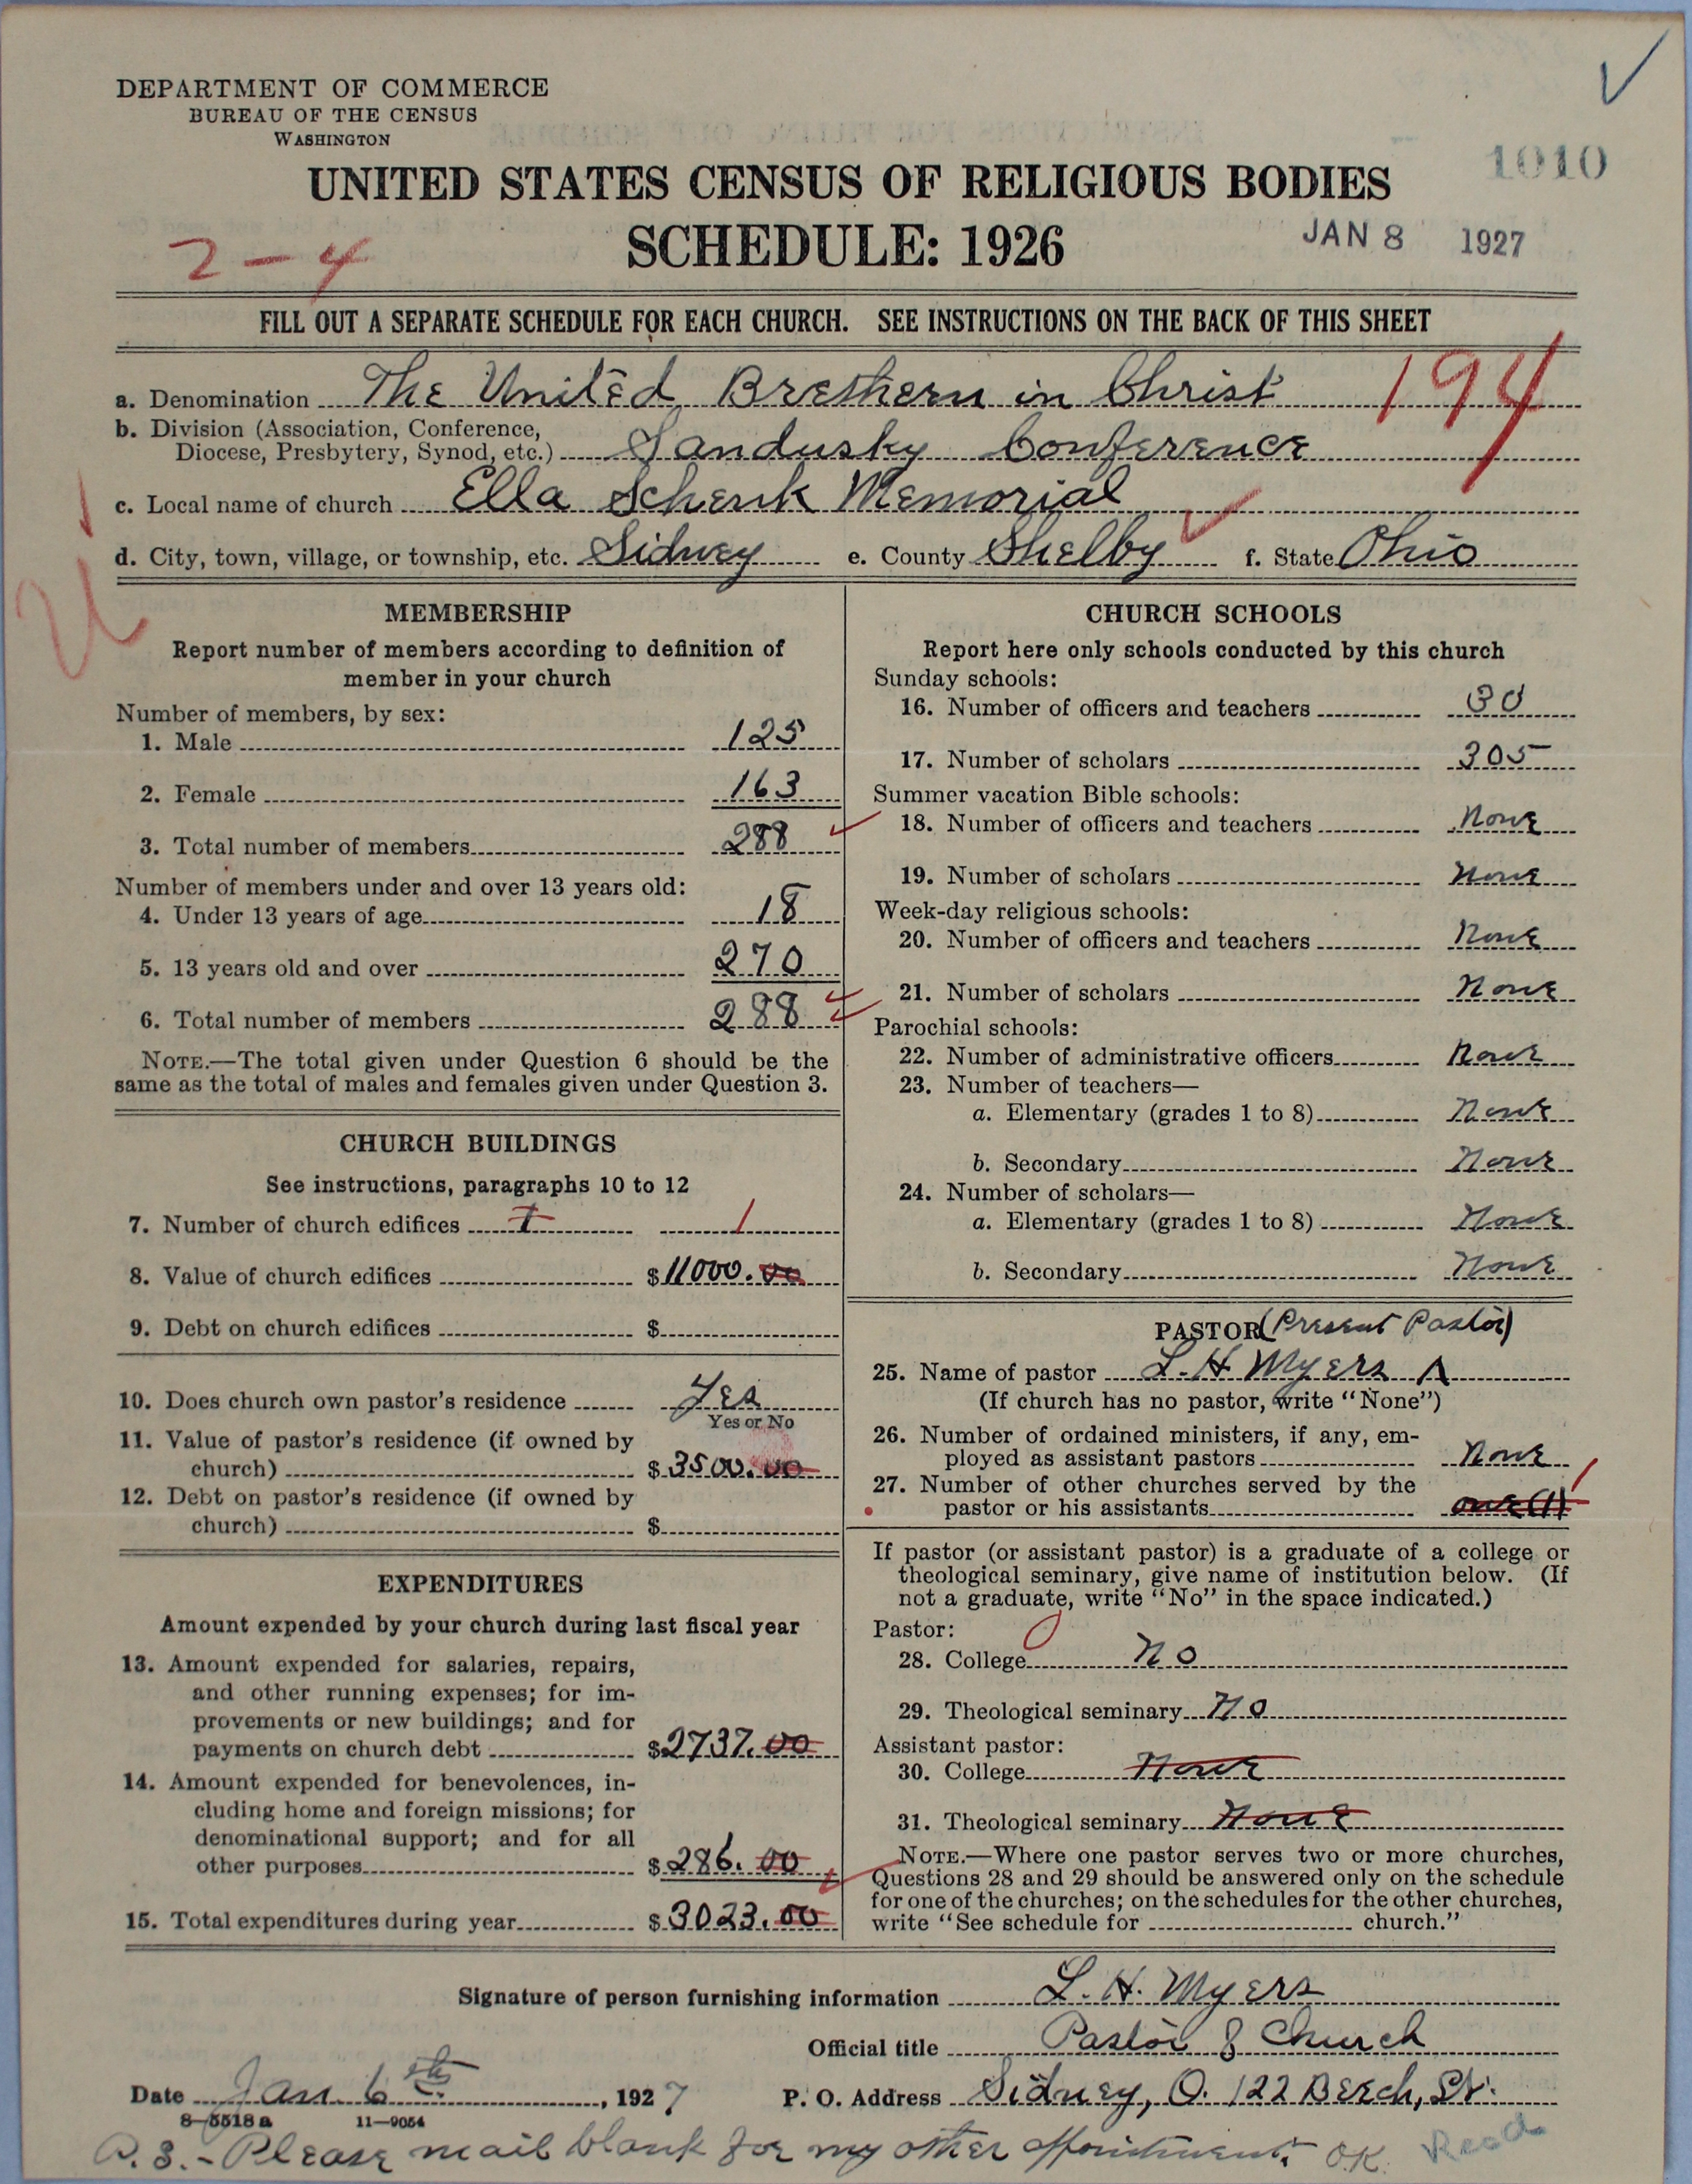 DEPARTMENT OF COMMERCE
BUREAU OF THE CENSUS
WASHINGTON
1010
UNITED STATES CENSUS OF RELIGIOUS BODIES
SCHEDULE: 1926
JAN 8 1927
2-4
FILL OUT A SEPARATE SCHEDULE FOR EACH CHURCH. SEE INSTRUCTIONS ON THE BACK OF THIS SHEET
194
a. Denomination The United Brethern in Christ
b. Division (Association, Conference,
Diocese, Presbytery, Synod, etc.) Sandusky Conference
c. Local name of church Ella Schenk Memorial
d. City, town, village, or township, etc. Sidney e. County Shelby f. State Ohio
MEMBERSHIP
Report number of members according to definition of
member in your church
Number of members, by sex:
1. Male 125
2. Female 163
3. Total number of members 288
Number of members under and over 13 years old:
4. Under 13 years of age 18
5. 13 years old and over 270
6. Total number of members 288
NOTE.—The total given under Question 6 should be the
same as the total of males and females given under Question 3.
CHURCH BUILDINGS
See instructions, paragraphs 10 to 12
7. Number of church edifices 1 1
8. Value of church edifices $11000.00
9. Debt on church edifices $
10. Does church own pastor's residence Yes
Yes or No
11. Value of pastor's residence (if owned by
church) $3500.00
12. Debt on pastor's residence (if owned by
church) $
EXPENDITURES
Amount expended by your church during last fiscal year
13. Amount expended for salaries, repairs,
and other running expenses; for im-
provements or new buildings; and for
payments on church debt $2737.00
14. Amount expended for benevolences, in-
cluding home and foreign missions; for
denominational support; and for all
other purposes $286.00
15. Total expenditures during year $3023.00
CHURCH SCHOOLS
Report here only schools conducted by this church
Sunday schools:
16. Number of officers and teachers 30
17. Number of scholars 305
Summer vacation Bible schools:
18. Number of officers and teachers None
19. Number of scholars None
Week-day religious schools:
20. Number of officers and teachers None
21. Number of scholars None
Parochial schools:
22. Number of administrative officers None
23. Number of teachers—
a. Elementary (grades 1 to 8) None
b. Secondary None
24. Number of scholars—
a. Elementary (grades 1 to 8) None
b. Secondary None
PASTOR (Present Pastor)
25. Name of pastor L. H. Myers
(If church has no pastor, write "None")
26. Number of ordained ministers, if any, em-
ployed as assistant pastors None
27. Number of other churches served by the
pastor or his assistants one (1) 1
If pastor (or assistant pastor) is a graduate of a college or
theological seminary, give name of institution below. (If
not a graduate, write "No" in the space indicated.)
Pastor: 0
28. College No
29. Theological seminary No
Assistant pastor:
30. College None
31. Theological seminary None
NOTE.—Where one pastor serves two or more churches,
Questions 28 and 29 should be answered only on the schedule
for one of the churches; on the schedules for the other churches,
write "See schedule for church."
Signature of person furnishing information L. H. Myers
Official title Pastor of Church
Date Jan 6th, 1927 P. O. Address Sidney, O. 122 Beech, St.
8-5518 a 11—9054
P.S.- Please mail blank for my other Appointment. O.K. Read